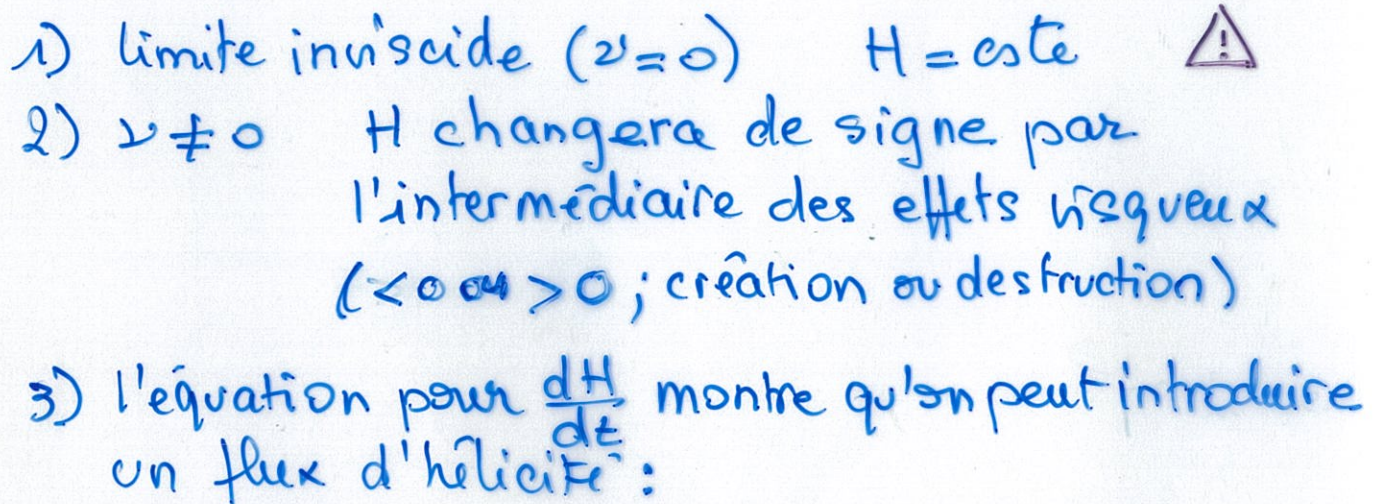 1) limite inviscide (ν=0) H = cste ⚠
2) ν ≠ 0 H changera de signe par
l'intermédiaire des effets visqueux
(<0 ou >0 ; création ou destruction)
3) l'équation pour dH/dt montre qu'on peut introduire
un flux d'hélicité :